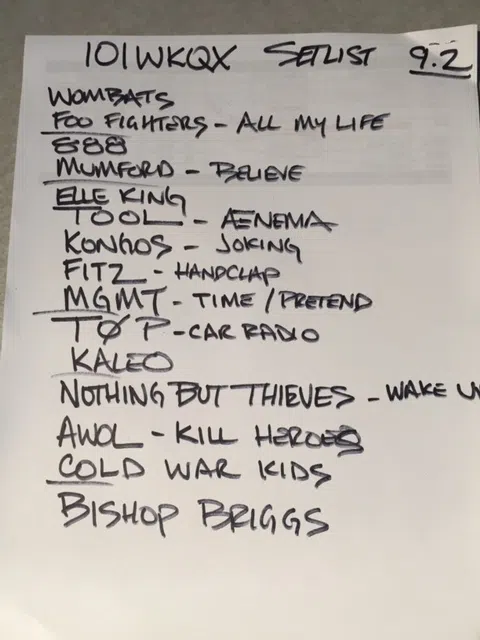 101WKQX SETLIST 9.2
WOMBATS
FOO FIGHTERS - ALL MY LIFE
888
MUMFORD - BELIEVE
ELLE KING
TOOL - ÆNEMA
KONGOS - JOKING
FITZ - HANDCLAP
MGMT - TIME / PRETEND
TØP - CAR RADIO
KALEO
NOTHING BUT THIEVES - WAKE
AWOL - KILL HEROES
COLD WAR KIDS
BISHOP BRIGGS